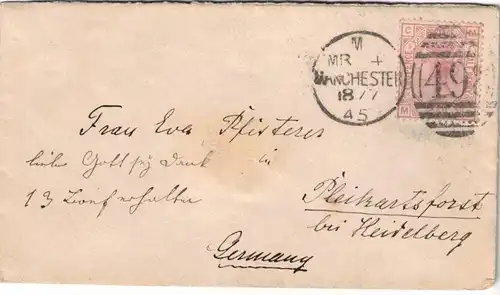 M
MR 4
MANCHESTER
1877
45
498
Frau Eva Pfisterer
liebe Gott sey Dank
in
13 Brief erhalten
Pleikartsforst
bei Heidelberg
Germany